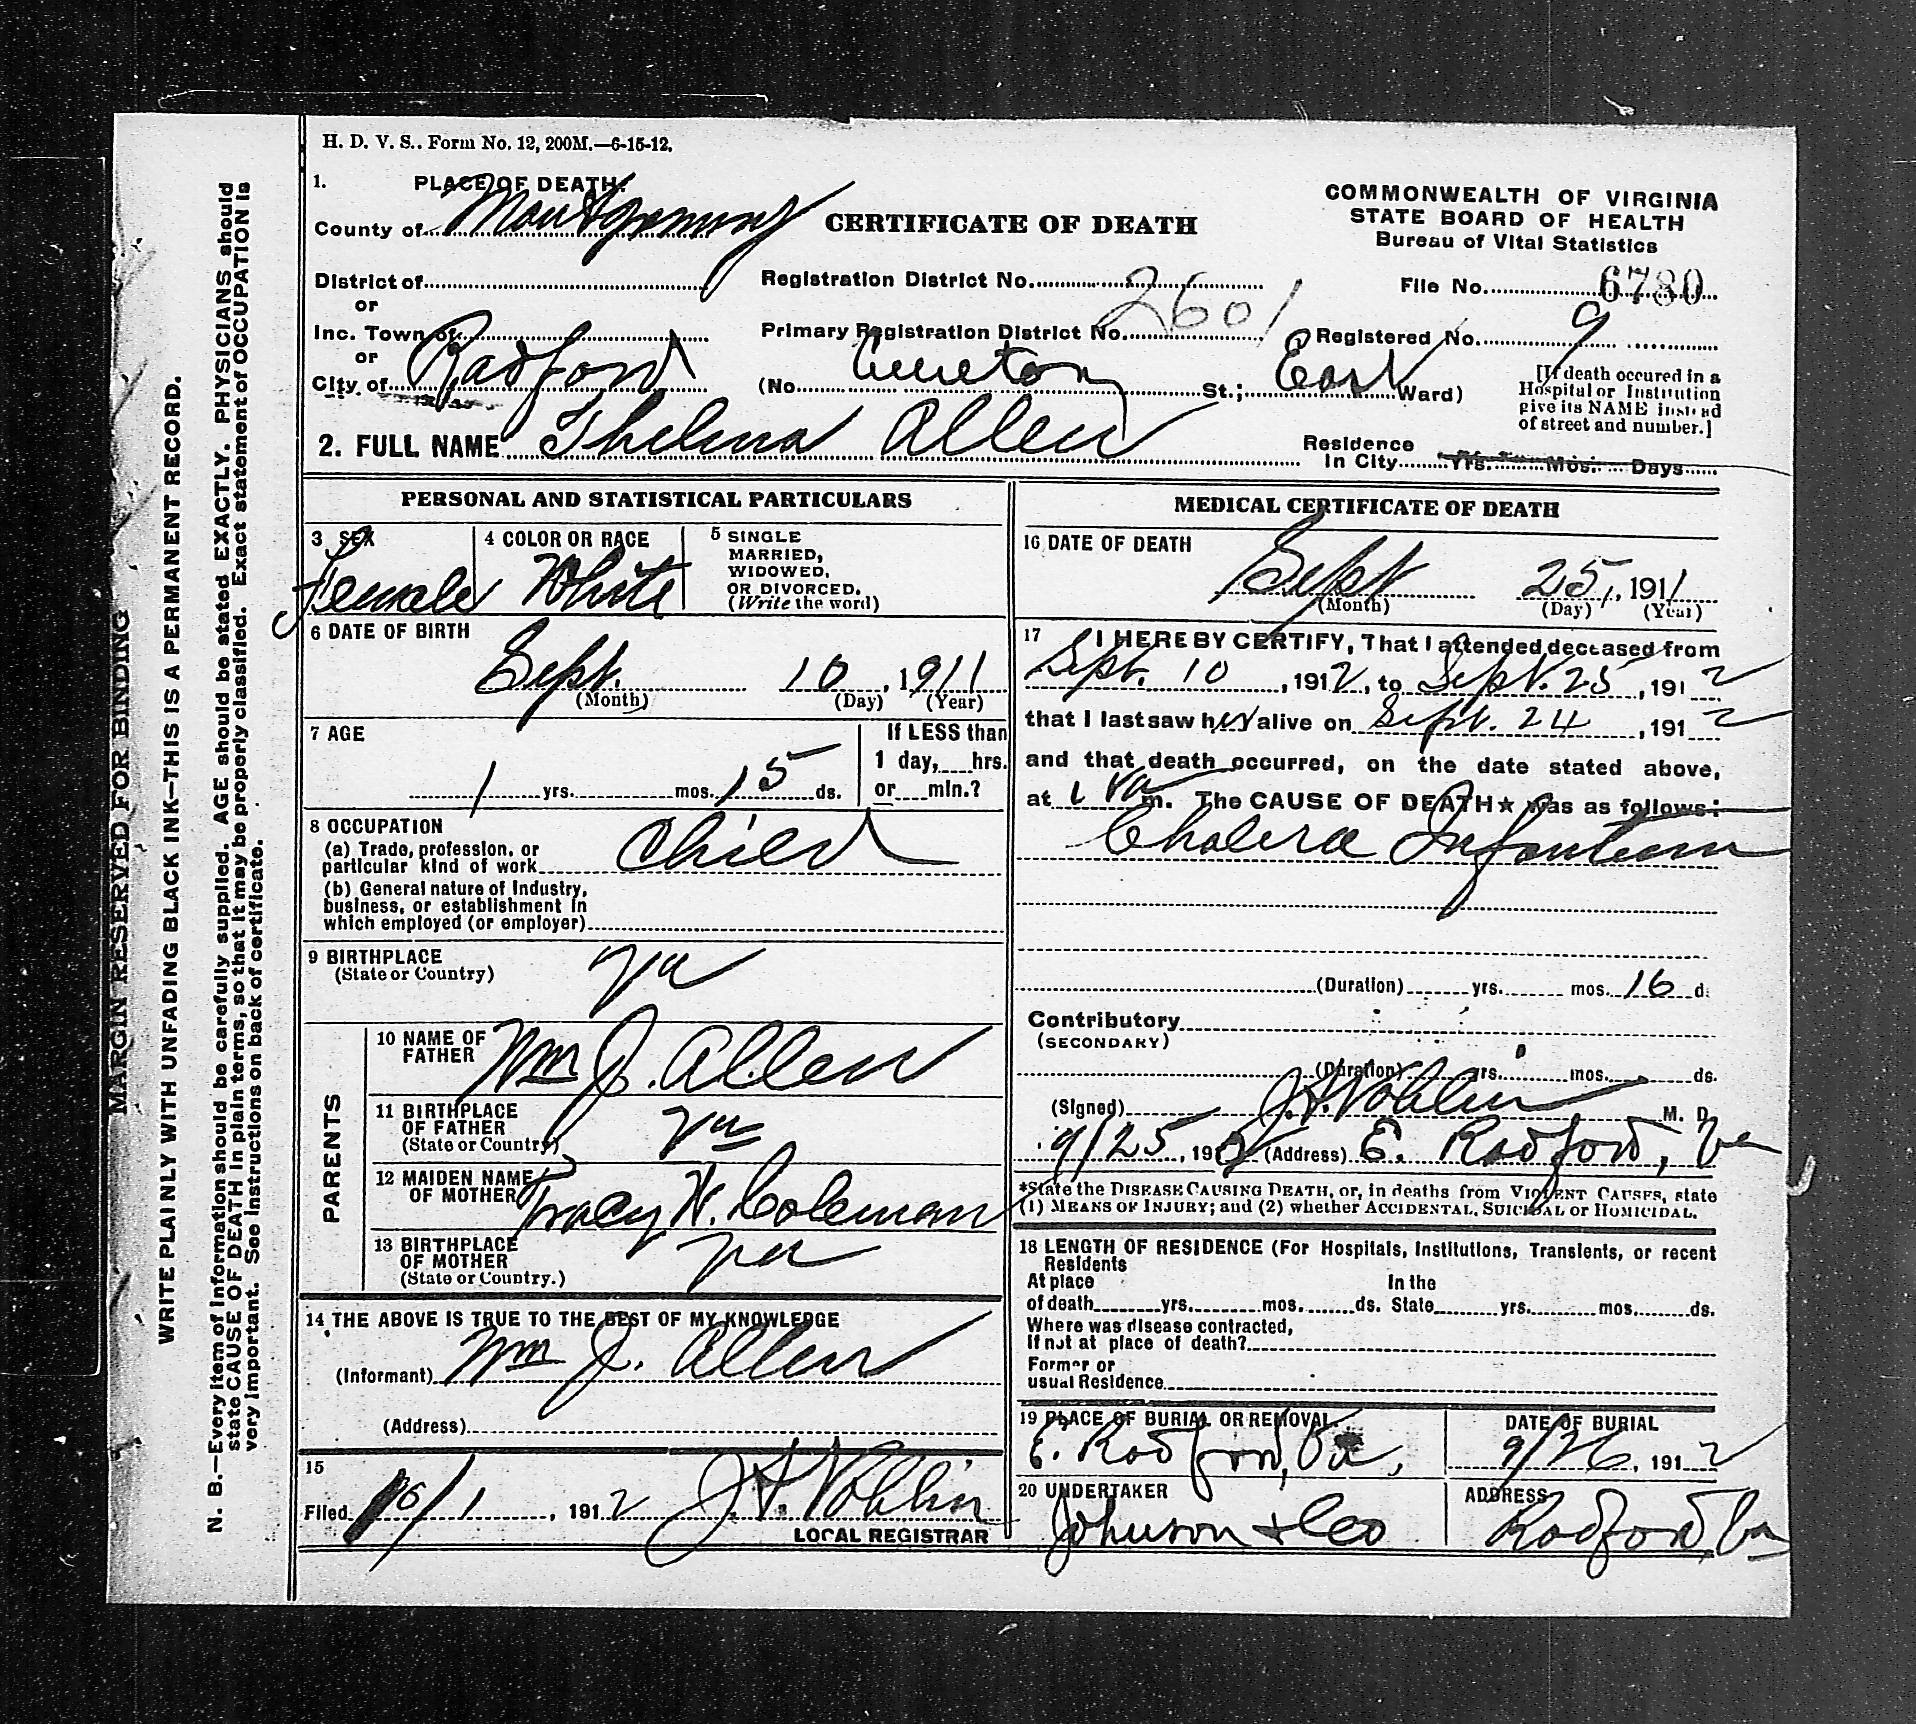 H. D. V. S.. Form No. 12, 200M.—6-15-12.
1. PLACE OF DEATH:
County of Montgomery
District of
or
Inc. Town of
or
City of Radford
CERTIFICATE OF DEATH
COMMONWEALTH OF VIRGINIA
STATE BOARD OF HEALTH
Bureau of Vital Statistics
Registration District No. 2601
File No. 6780
Primary Registration District No.
Registered No. 9
(No. St.; East Ward)
[If death occured in a
Hospital or Institution
give its NAME instead
of street and number.]
2. FULL NAME Thelma Allen
Residence
In City Yrs. Mos. Days
PERSONAL AND STATISTICAL PARTICULARS
3 SEX
Female
4 COLOR OR RACE
White
5 SINGLE
MARRIED,
WIDOWED,
OR DIVORCED.
(Write the word)
6 DATE OF BIRTH
Sept. 10, 1911
(Month) (Day) (Year)
7 AGE
1 yrs. mos. 15 ds.
If LESS than
1 day, hrs.
or min.?
8 OCCUPATION
(a) Trade, profession, or
particular kind of work Child
(b) General nature of Industry,
business, or establishment in
which employed (or employer)
9 BIRTHPLACE
(State or Country) Va
PARENTS
10 NAME OF
FATHER Wm J. Allen
11 BIRTHPLACE
OF FATHER
(State or Country) Va
12 MAIDEN NAME
OF MOTHER Tracy N. Coleman
13 BIRTHPLACE
OF MOTHER
(State or Country.) Va
14 THE ABOVE IS TRUE TO THE BEST OF MY KNOWLEDGE
(Informant) Wm J. Allen
(Address)
15
Filed 10/1, 1912
LOCAL REGISTRAR
MEDICAL CERTIFICATE OF DEATH
16 DATE OF DEATH
Sept 25, 1911
(Month) (Day) (Year)
17 I HEREBY CERTIFY, That I attended deceased from
Sept. 10, 1912, to Sept. 25, 1912
that I last saw her alive on Sept. 24, 1912
and that death occurred, on the date stated above,
at m. The CAUSE OF DEATH★ was as follows:
Cholera Infantum
(Duration) yrs. mos. 16 d.
Contributory
(SECONDARY)
(Duration) yrs. mos. ds.
(Signed) M. D.
9/25, 191 (Address) E. Radford, Va
*State the DISEASE CAUSING DEATH, or, in deaths from VIOLENT CAUSES, state
(1) MEANS OF INJURY; and (2) whether ACCIDENTAL, SUICIDAL or HOMICIDAL.
18 LENGTH OF RESIDENCE (For Hospitals, Institutions, Transients, or recent
Residents
At place In the
of death yrs. mos. ds. State yrs. mos. ds.
Where was disease contracted,
If not at place of death?
Former or
usual Residence
19 PLACE OF BURIAL OR REMOVAL.
E. Radford, Va,
DATE OF BURIAL
9/26, 1912
20 UNDERTAKER
Johnson & Co
ADDRESS
Radford, Va
MARGIN RESERVED FOR BINDING
WRITE PLAINLY WITH UNFADING BLACK INK—THIS IS A PERMANENT RECORD.
N. B.—Every item of information should be carefully supplied. AGE should be stated EXACTLY. PHYSICIANS should
state CAUSE OF DEATH in plain terms, so that it may be properly classified. Exact statement of OCCUPATION is
very important. See instructions on back of certificate.